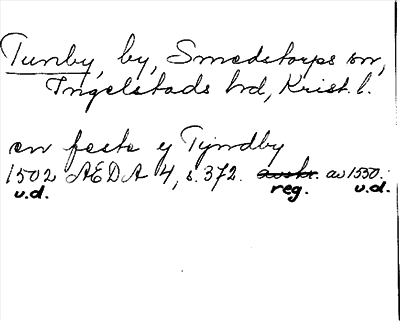 Tunby, by, Smedstorps sn,
Ingelstads hd, Krist. l.
en feste y Tyndby
1502 AEDA 4, s. 372. avskr. av 1550.
u.d. reg. u.d.